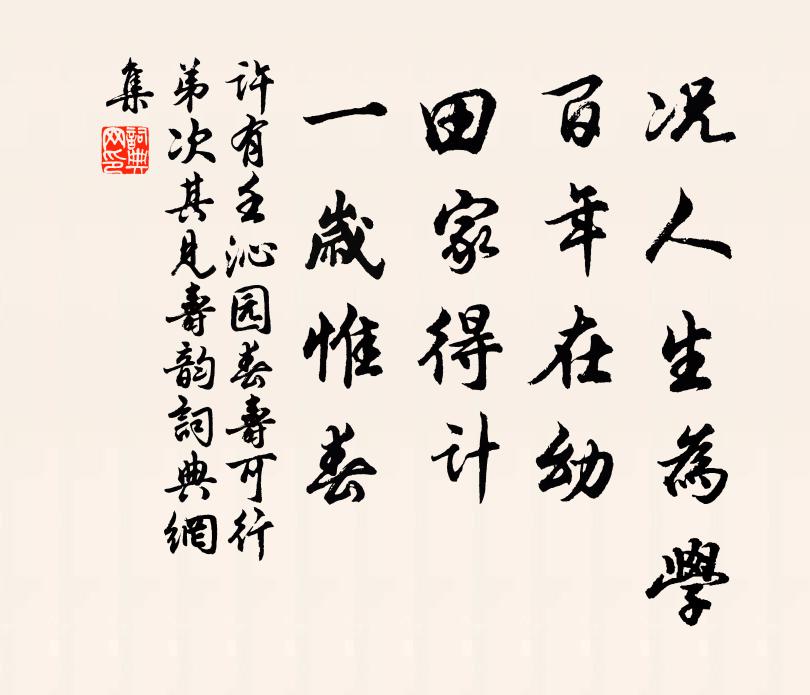 况人生為學
百年在幼
田家得计
一歲惟春
許有壬沁园春壽可行
弟次其見壽韵詞典網
集
詞典網印